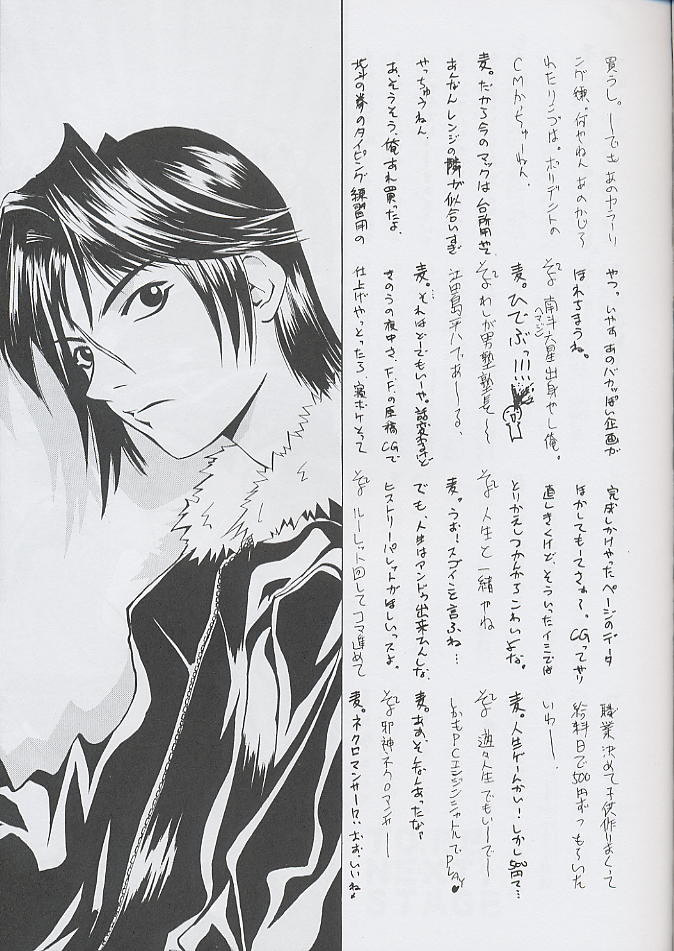 買うし。ーでも あの
何やねん あのかじら
れたリンゴは。ポリデントの
CMかっちゅーねん。
麦。だから今のマックは台所用やて。
あんなんレンジの隣が似合いすぎ
やっちゅうねん。
あ、そうそう、俺あれ買ったよ。
北斗の拳のタイピング練習用の
やつ。あのバカっぽい企画が
ほれちまうね。
そよ 南斗六星出身やし俺。
麦。ひでぶっ!!!
そよ わしが男塾塾長〜〜
江田島平八であ〜〜る、
麦。それはどーでもいーや。話変るけど
きのうの夜中さ、F.F.の原稿CGで
仕上げやっとったら、寝ボケとって
完成しかけやったページのデータ
ほかしてもーてさぁ〜。CGってやり
直しきくけど、そういったイミでは
とりかえしつかんからこわいよな。
そよ 人生と一緒やね
麦。うお!スゴイこと言ふね…
でも、人生はアンドゥ出来へんしな、
ヒストリーパレットがほしいっスよ。
そよ ルーレット回してコマ進めて
職業決めて子供作りまくって
給料日で500円ずつもらいた
いわー。
麦。人生ゲームかい!しかし500円て…
そよ 遊々人生でもいーでー
しかもPCエンジンシャトルでPlay♥
麦。あぁそんなんあったなぁ
そよ 邪神ネクロマンサー
麦。ネクロマンサー!?おお、いいね♪